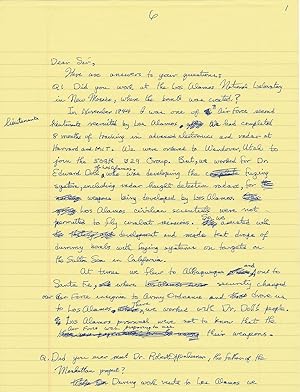 6
1
Dear Sir,
Here are answers to your questions:
Q1 Did you work at the Los Alamos National Laboratory
in New Mexico, where the bomb was created?
In November 1944 I was one of Air Force second
lieutenants
lieutenants recruited by Los Alamos. We had completed
8 months of training in advanced electronics and radar at
Harvard and MIT. We were ordered to Wendover, Utah to
join the 509th B29 Group. But, we worked for Dr.
Edward Doll, who was developing the
fuzing
system, including radar height detection radars, for
weapons being developed by Los Alamos.
Los Alamos civilian scientists were not
permitted to fly combat missions. We assisted with
development and made test drops of
dummy bombs with fuzing systems on targets on
the Salton Sea in California.
At times we flew to Albuquerque and to
Santa Fe, where security changed
our Air Force insignia to Army Ordnance and drove us
to Los Alamos. There we worked with Dr. Doll's people.
Los Alamos personnel were not to know that the
Air Force was preparing to use
their weapons.
Q. Did you ever meet Dr. Robert Oppenheimer, the father of the
Manhattan project?
During work visits to Los Alamos we